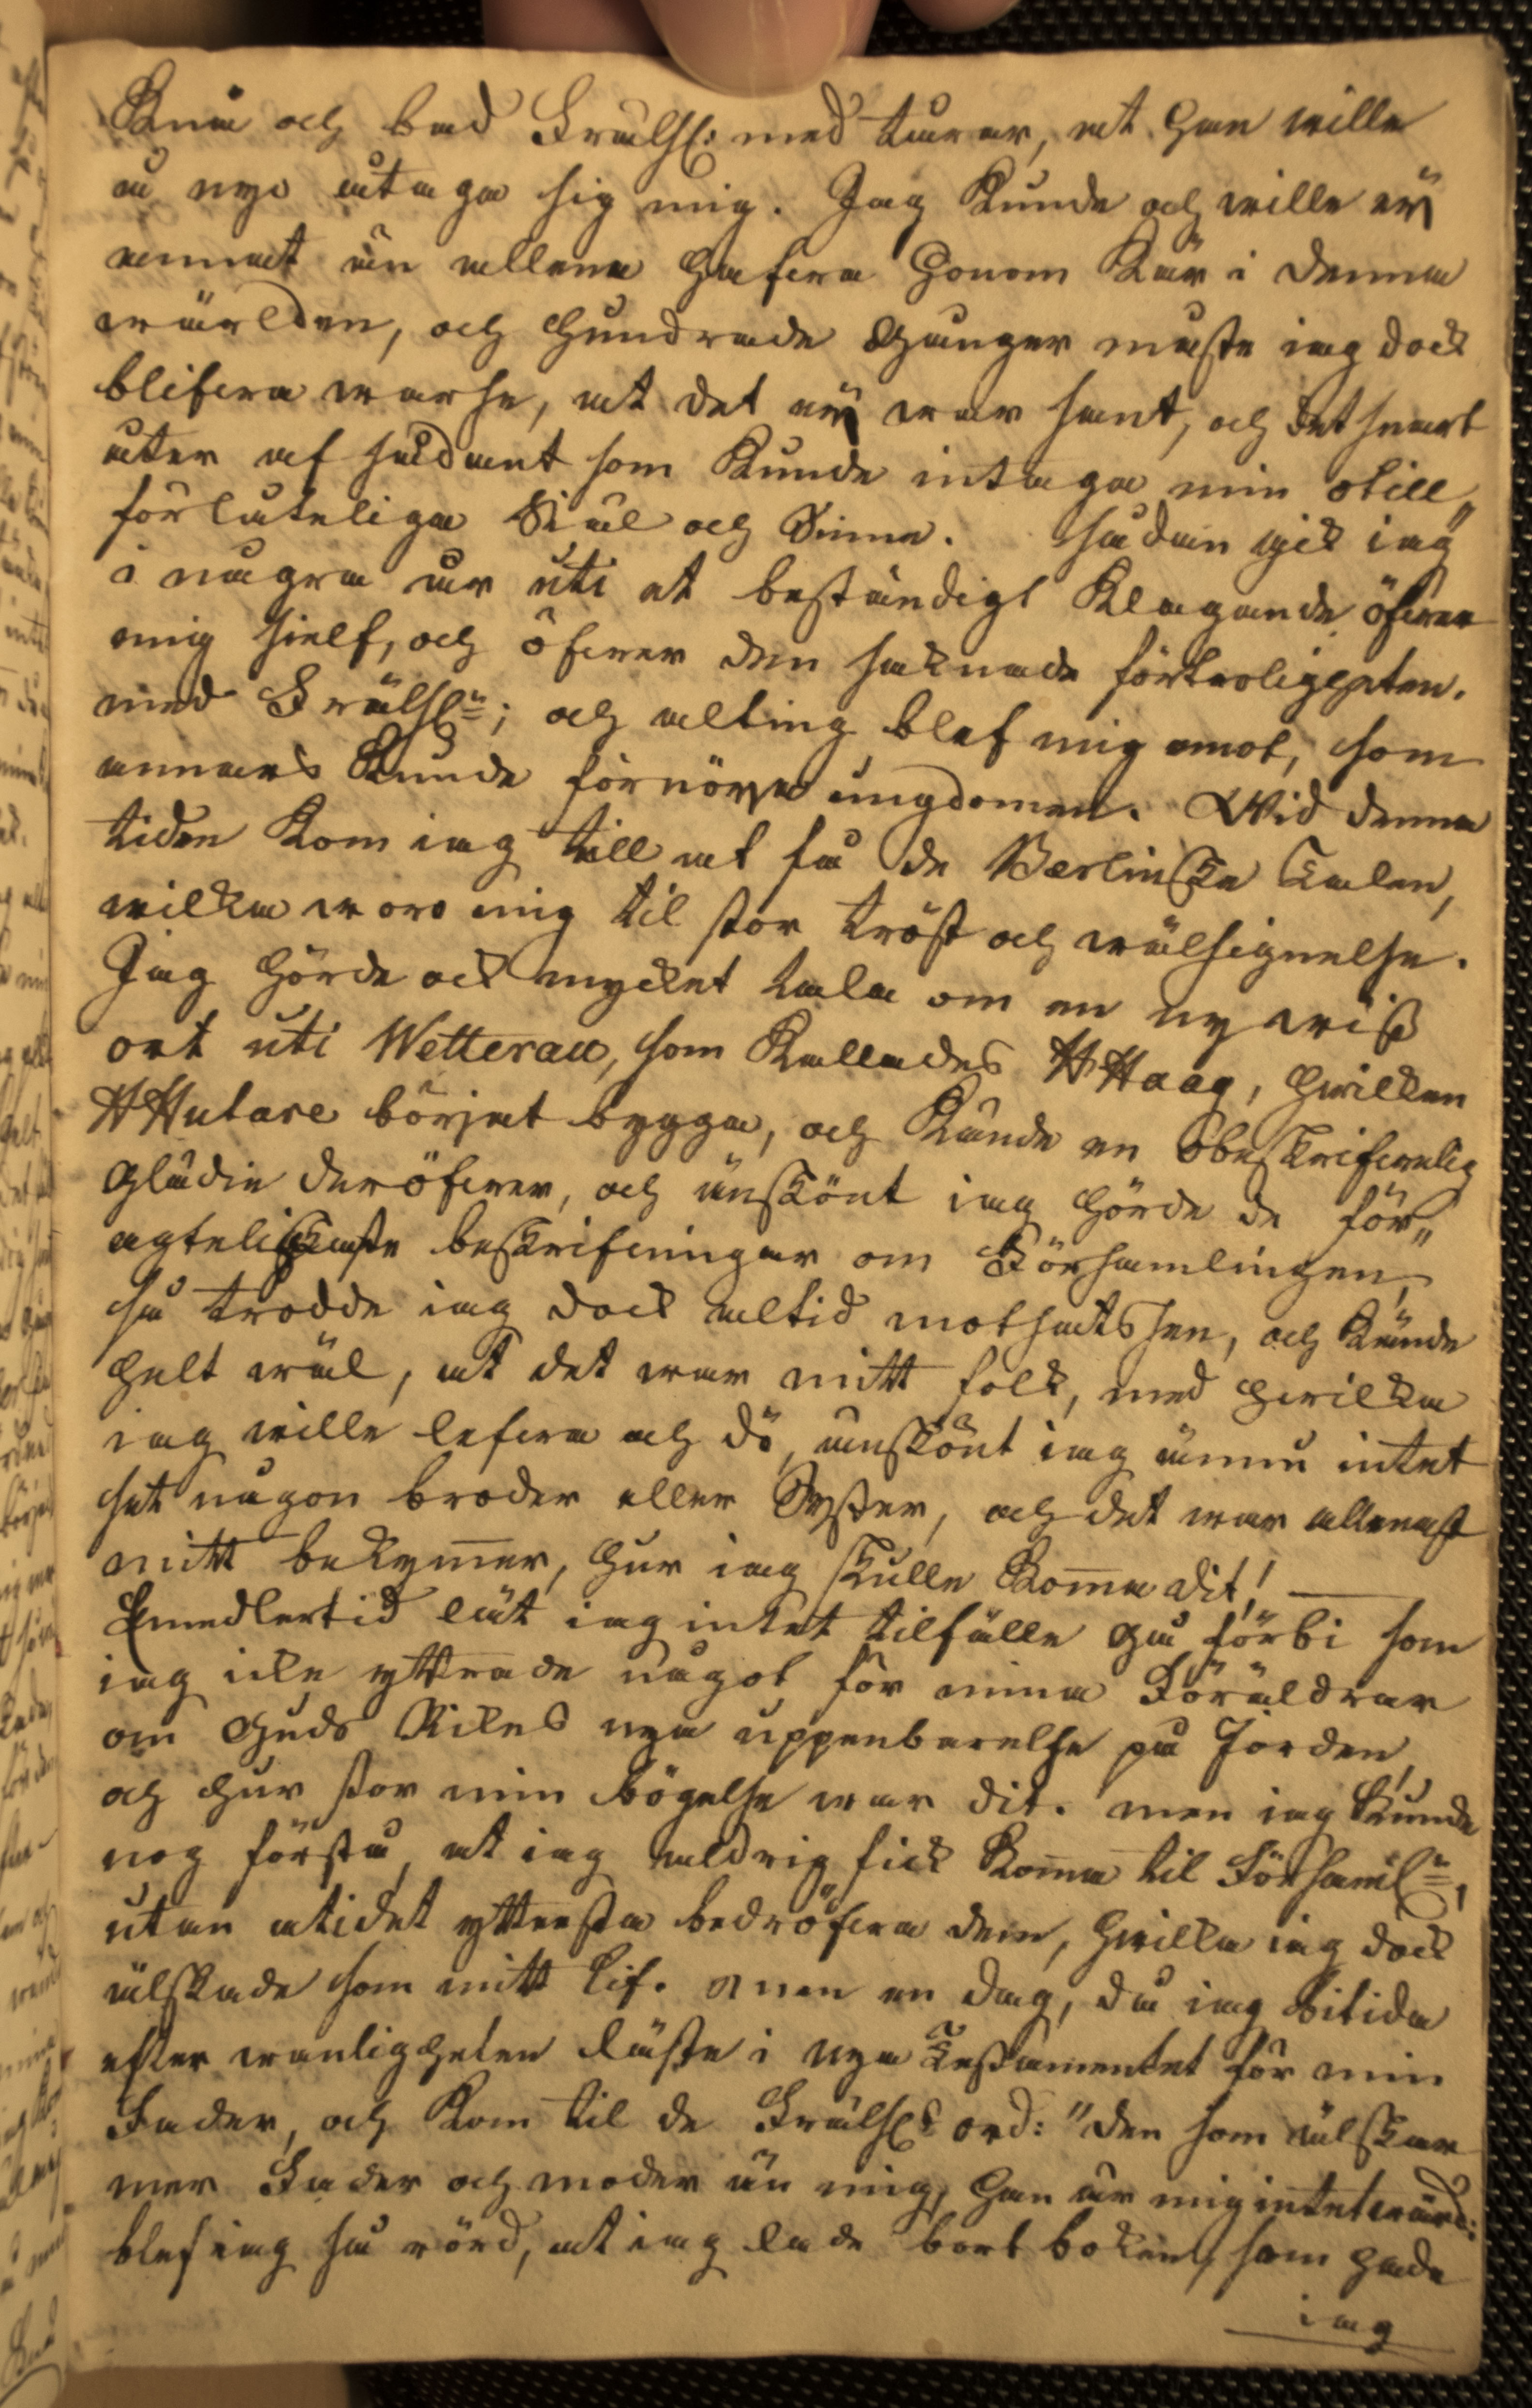 Knä och bad Frälsr: med tårar, at han wille
å nyo antaga sig mig. Jag kunde och wille ej
annat än allena hafwa honom kär i denna
wärlden, och hundrade gånger måste iag dock
blifwa warse, at det ej war sant, och det snart
åter af sådant som kunde intaga min otill„
förlåteliga Siäl och Sinne. sådan gick iag
i några år uti et beständigt klagande öfwer
mig sielf, och öfwer den saknade förtroligheten
med Frälsn; och alting blef mig emot, som
annars kunde förnöya ungdomen. Wid denna
tiden kom iag till at få de Berlinska talen,
wilka woro mig til stor tröst och wälsignelse.
Jag hörde ock mycket tala om en ny wiß
ort uti Wetterau, som kallades HHaag, hwilken
HHutare börjat bygga, och kände en obeskrifwelig
glädie deröfwer, och änskönt iag hörde de för„
agteligaste beskrifningar om Församlingen,
så trodde iag dock altid motsatsen, och kände
helt wäl, at det war mitt folk, med hwilka
iag wille lefwa och dö, änskönt iag ännu intet
set någon broder eller Syster, och det war allenast
mitt bekymer, hur iag skulle koma dit! —
Emedlertid lät iag intet tilfälle gå förbi som
iag icke yttrade något för mina Föräldrar
om Guds Rikes nya uppenbarelse på Jorden,
och hur stor min bögelse war dit. men iag kunde
nog förstå, at iag aldrig fick koma til Församln,
utan at i det yttersta bedröfwa dem, hwilka iag dock
älskade som mitt lif. Men en dag, då iag bitida
efter wanligheten läste i nya Testamentet för min
Fader, och kom til de Frälsrs ord: "den som älskar
mer Fader och moder än mig, han är mig intet wärd:
blef iag så rörd, at iag lade bort boken, som hade
iag